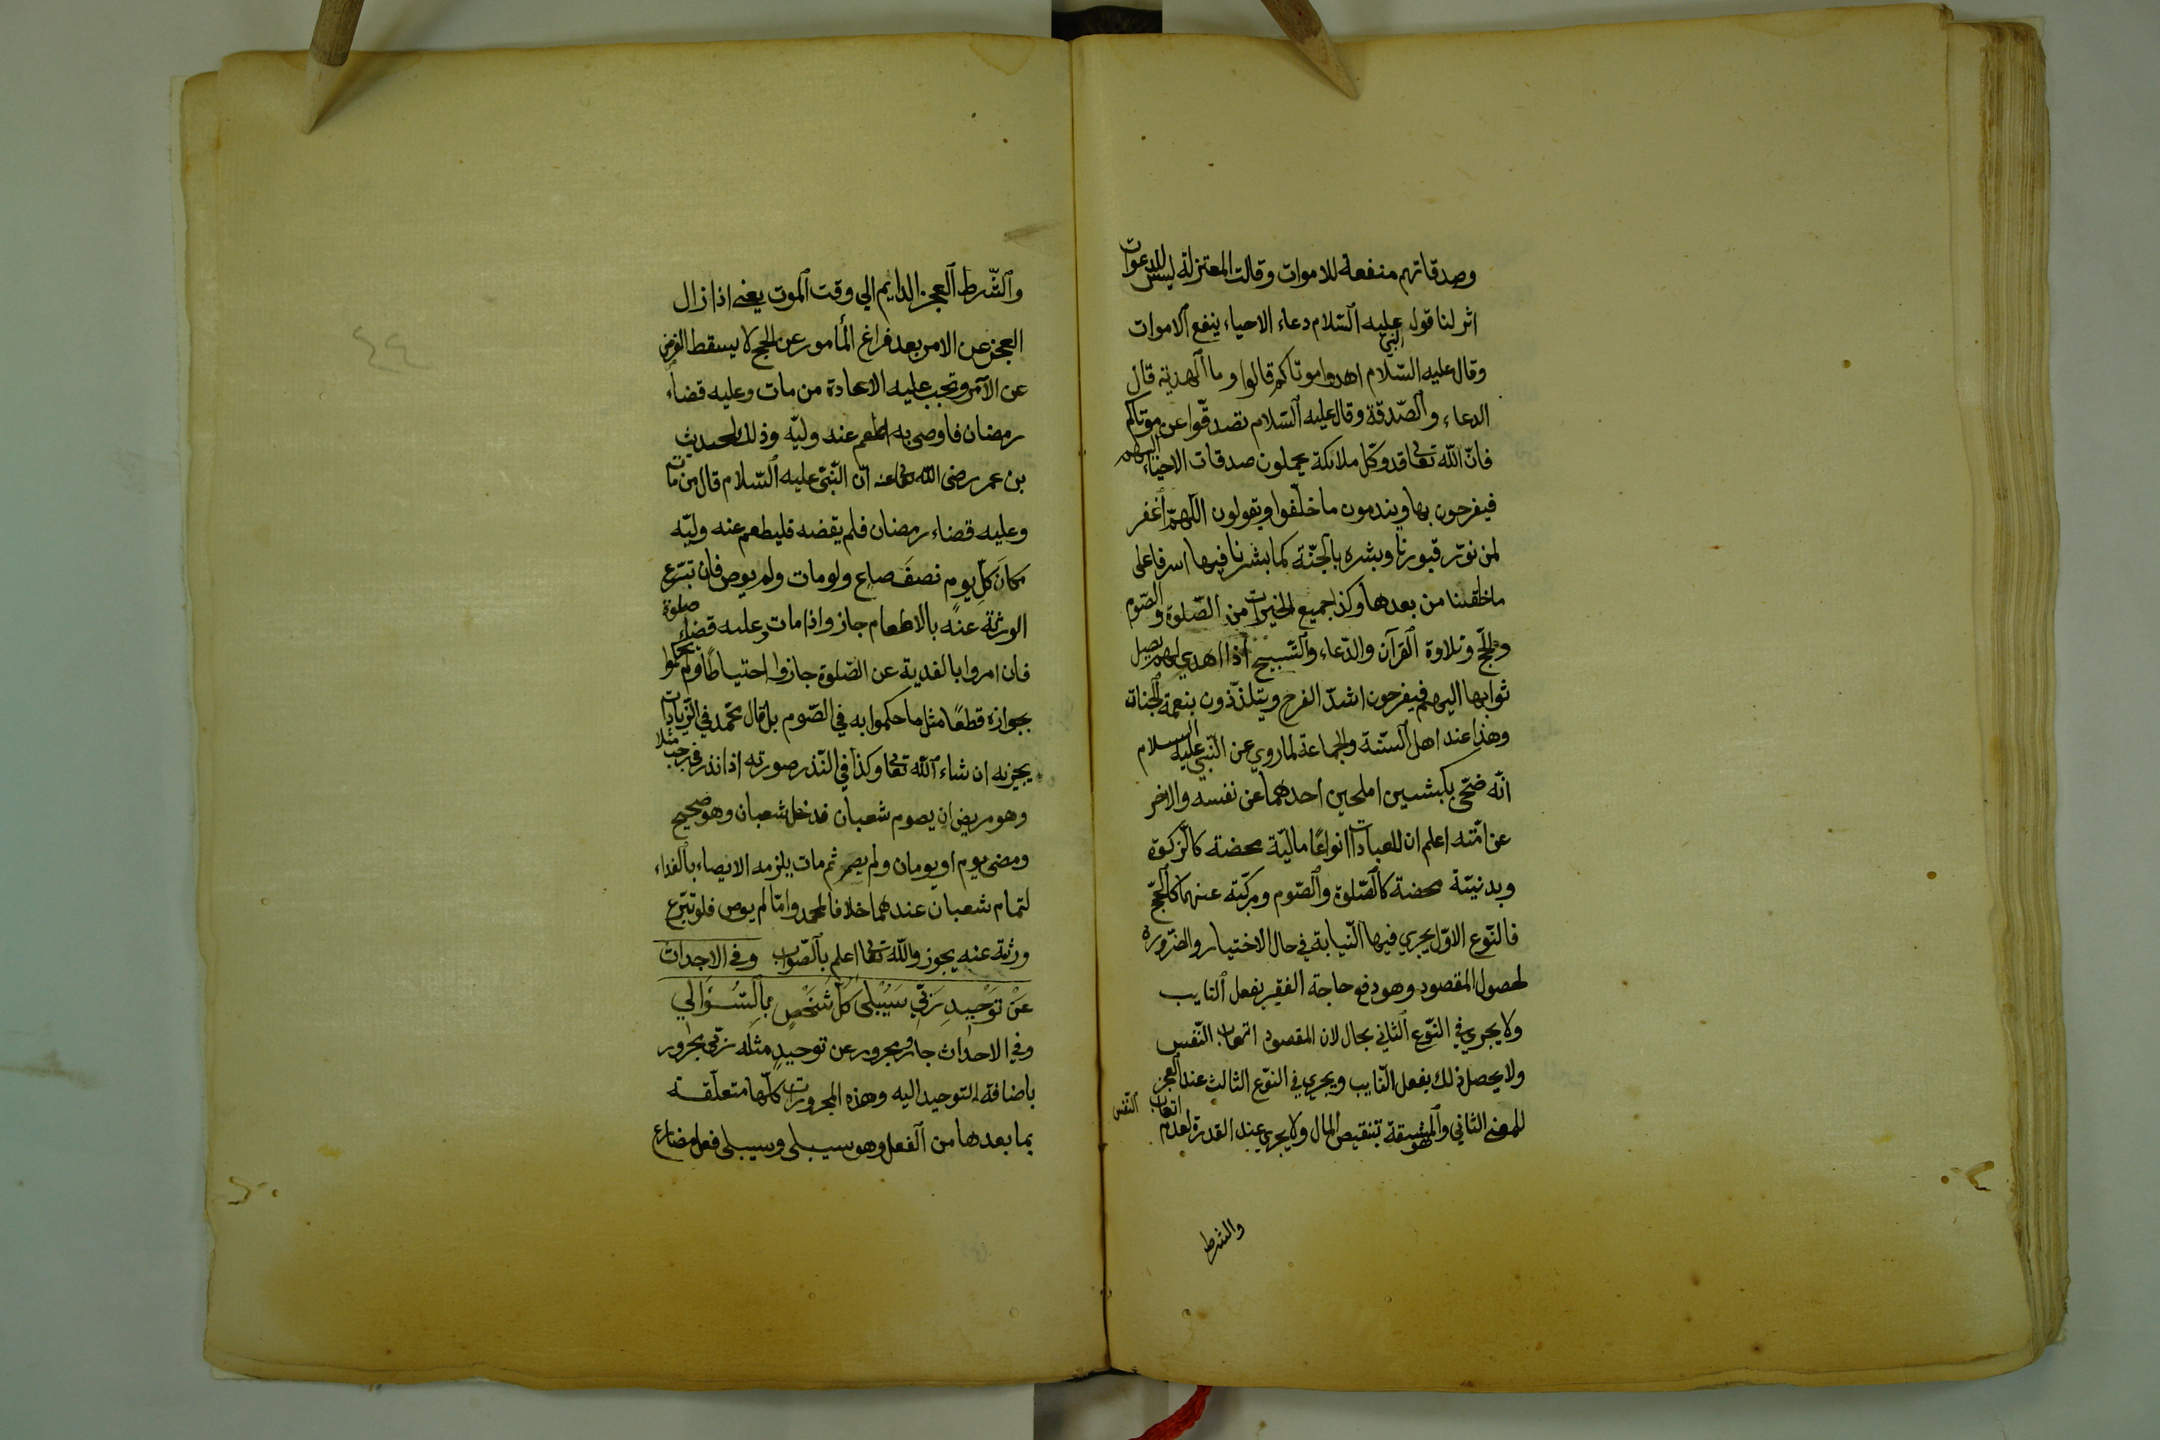 وصدقاتهم منفعة للاموات وقالت المعتزلة ليس للدعوات
اثر لنا قوله عليه السلام دعاء الاحياء ينفع الاموات
وقال النبي عليه السلام اهدوا موتاكم قالوا وما الهدية قال
الدعاء والصدقة وقال عليه السلام تصدقوا عن موتاكم
فان الله تعا قد وكل ملائكة يحملون صدقات الاحياء اليهم
فيفرحون بها ويندمون ما خلفوا ويقولون اللهم اغفر
لمن نور قبورنا وبشره بالجنة كما بشرنا فيها اسرفا على
ما خلفنا من بعدها وكذا جميع الخيرات من الصلوة والصوم
والحج وتلاوة القرآن والدعاء والتسبيح اذا اهدي لهم يصل
ثوابها اليهم فيفرحون اشد الفرح ويتلذذون بنعمة الجنات
وهذا عند اهل السنة والجماعة لما روي عن النبي عليه السلام
انه ضحى بكبشين املحين احدهما عن نفسه والاخر
عن امته اعلم ان للعبادات انواعا مالية محضة كالزكوة
وبدنية محضة كالصلوة والصوم ومركبة عنهما كالحج
فالنوع الاول يجري فيها النيابة في حال الاختيار والضرورة
لحصول المقصود وهو دفع حاجة الفقير بفعل النايب
ولا يجري في النوع الثاني بحال لان المقصود اتعاب النفس
ولا يحصل ذلك بفعل النايب ويجري في النوع الثالث عند العجز
للمعنى الثاني وهو المشقة بتنقيص المال ولا يجري عند القدرة لعدم اتعاب النفس
والشرط
والشرط العجز الدايم الي وقت الموت يعني اذا زال
العجز عن الامر بعد فراغ المأمور عن الحج لا يسقط الفرض
عن الآمر وتجب عليه الاعادة من مات وعليه قضاء
رمضان فاوصى به اطعم عنه وليه وذلك لحديث
بن عمر رضى الله تعا عنه ان النبي عليه السلام قال من مات
وعليه قضاء رمضان فلم يقضه فليطعم عنه وليه
مكان كل يوم نصف صاع ولو مات ولم يوص فان تبرع
الورثة عنه بالاطعام جاز واذا مات وعليه قضاء صلوة
فان امروا بالفدية عن الصلوة جازوا احتياطا ولم يحكموا
بجوازه قطعا مثل ما حكموا به في الصوم بل قال محمد في الزيادات
يجزيه ان شاء الله تعا وكذا في النذر صورته اذا نذر في رجب مثلا
وهو مريض ان يصوم شعبان فدخل شعبان وهو صحيح
ومضى يوم او يومان ولم يصم ثم مات يلزمه الايصاء بالفداء
لتمام شعبان عندهما خلافا لمحمد واما لم يوص فلو تبرع
ورثة عنه يجوز والله تعا اعلم بالصواب وفي الاجداث
عن توحيد ربي سيبلى كل شخص بالسؤالي
وفي الاحداث جار ومجرور عن توحيد مثله ربي مجرور
باضافة التوحيد اليه وهذه المجرورات كلها متعلقة
بما بعدها من الفعل وهو سيبلى وسيبلى فعل مضارع
٤٤